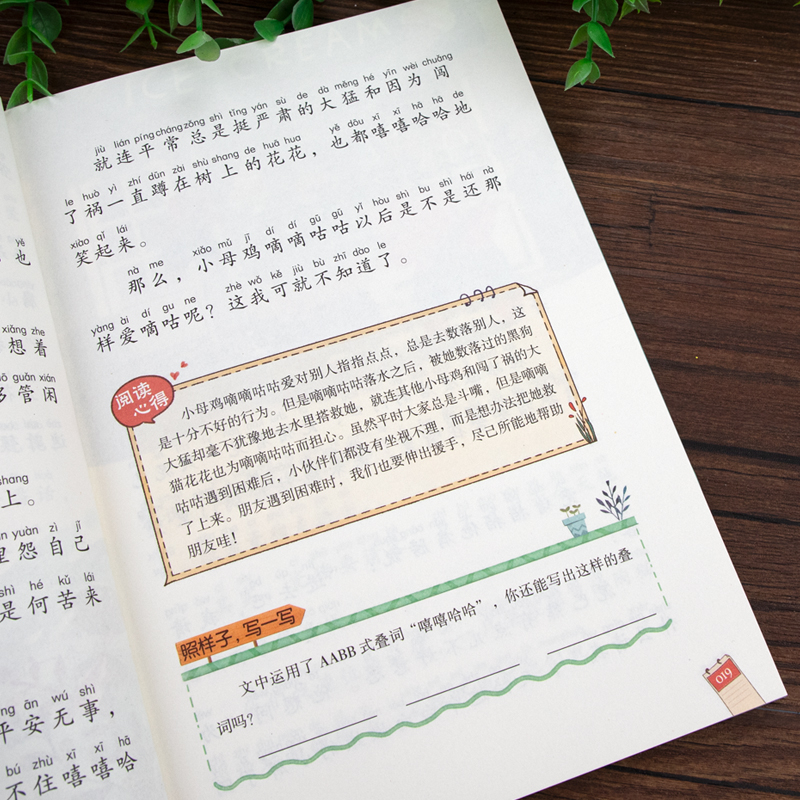 yě
也
xiǎng zhe
想着
guǎn xián
多管闲
shang
上。
yuàn zì jǐ
里怨自己
shì hé kǔ lái
是何苦来
ān wú shì
平安无事，
bú zhù xī xī hā
不住嘻嘻哈
jiù lián píng cháng zǒng shì tǐng yán sù de dà měng hé yīn wèi chuǎng
就连平常总是挺严肃的大猛和因为闯
le huò yì zhí dūn zài shù shang de huā hua yě dōu xī xī hā hā de
了祸一直蹲在树上的花花，也都嘻嘻哈哈地
xiào qǐ lái
笑起来。
nà me xiǎo mǔ jī dí dí gū gū yǐ hòu shì bu shì hái nà
那么，小母鸡嘀嘀咕咕以后是不是还那
yàng ài dí gu ne zhè wǒ kě jiù bù zhī dào le
样爱嘀咕呢？这我可就不知道了。
阅读
心得
小母鸡嘀嘀咕咕爱对别人指指点点，总是去数落别人，这
是十分不好的行为。但是嘀嘀咕咕落水之后，被她数落过的黑狗
大猛却毫不犹豫地去水里搭救她，就连其他小母鸡和闯了祸的大
猫花花也为嘀嘀咕咕而担心。虽然平时大家总是斗嘴，但是嘀嘀
咕咕遇到困难后，小伙伴们都没有坐视不理，而是想办法把她救
了上来。朋友遇到困难时，我们也要伸出援手，尽己所能地帮助
朋友哇！
照样子，写一写
文中运用了 AABB 式叠词“嘻嘻哈哈”，你还能写出这样的叠
词吗？
019